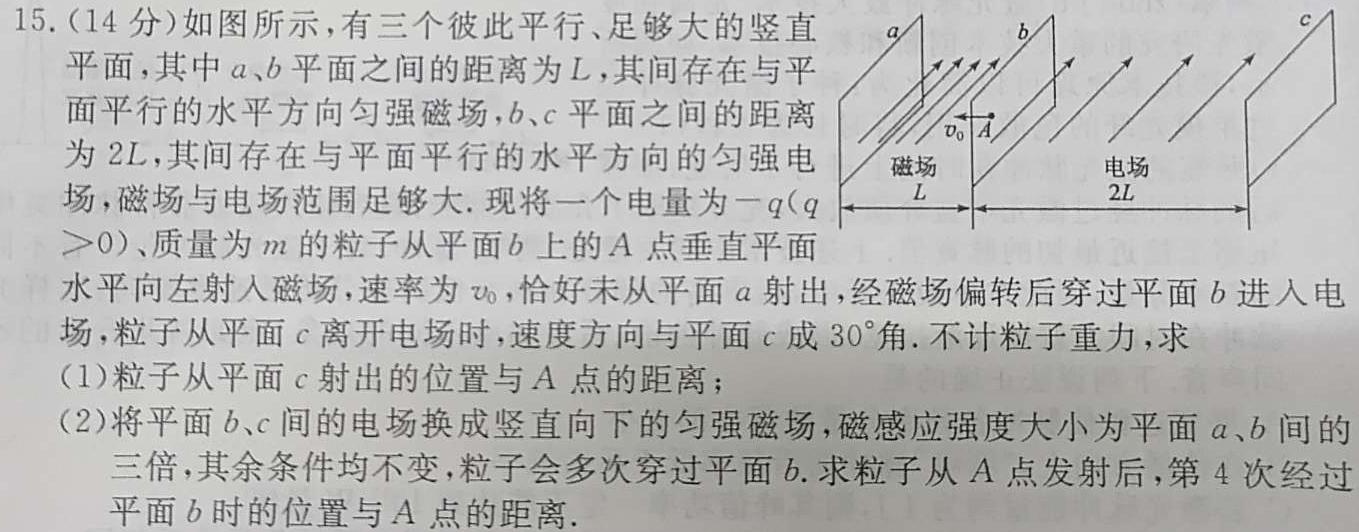 15.(14 分)如图所示,有三个彼此平行、足够大的竖直
平面,其中 a、b 平面之间的距离为 L,其间存在与平
面平行的水平方向匀强磁场,b、c 平面之间的距离
为 2L,其间存在与平面平行的水平方向的匀强电
场,磁场与电场范围足够大.现将一个电量为-q(q
>0)、质量为 m 的粒子从平面 b 上的 A 点垂直平面
水平向左射入磁场,速率为 v₀,恰好未从平面 a 射出,经磁场偏转后穿过平面 b 进入电
场,粒子从平面 c 离开电场时,速度方向与平面 c 成 30°角.不计粒子重力,求
(1)粒子从平面 c 射出的位置与 A 点的距离;
(2)将平面 b、c 间的电场换成竖直向下的匀强磁场,磁感应强度大小为平面 a、b 间的
三倍,其余条件均不变,粒子会多次穿过平面 b.求粒子从 A 点发射后,第 4 次经过
平面 b 时的位置与 A 点的距离.
a
b
c
v₀
A
磁场
L
电场
2L